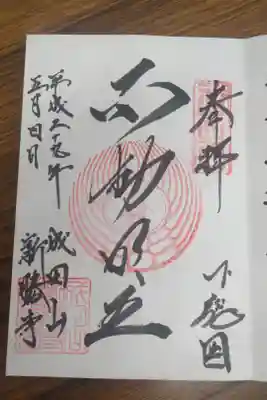 奉拝
下総国
不動明王
成田山
新勝寺
平成二九年
五月四日